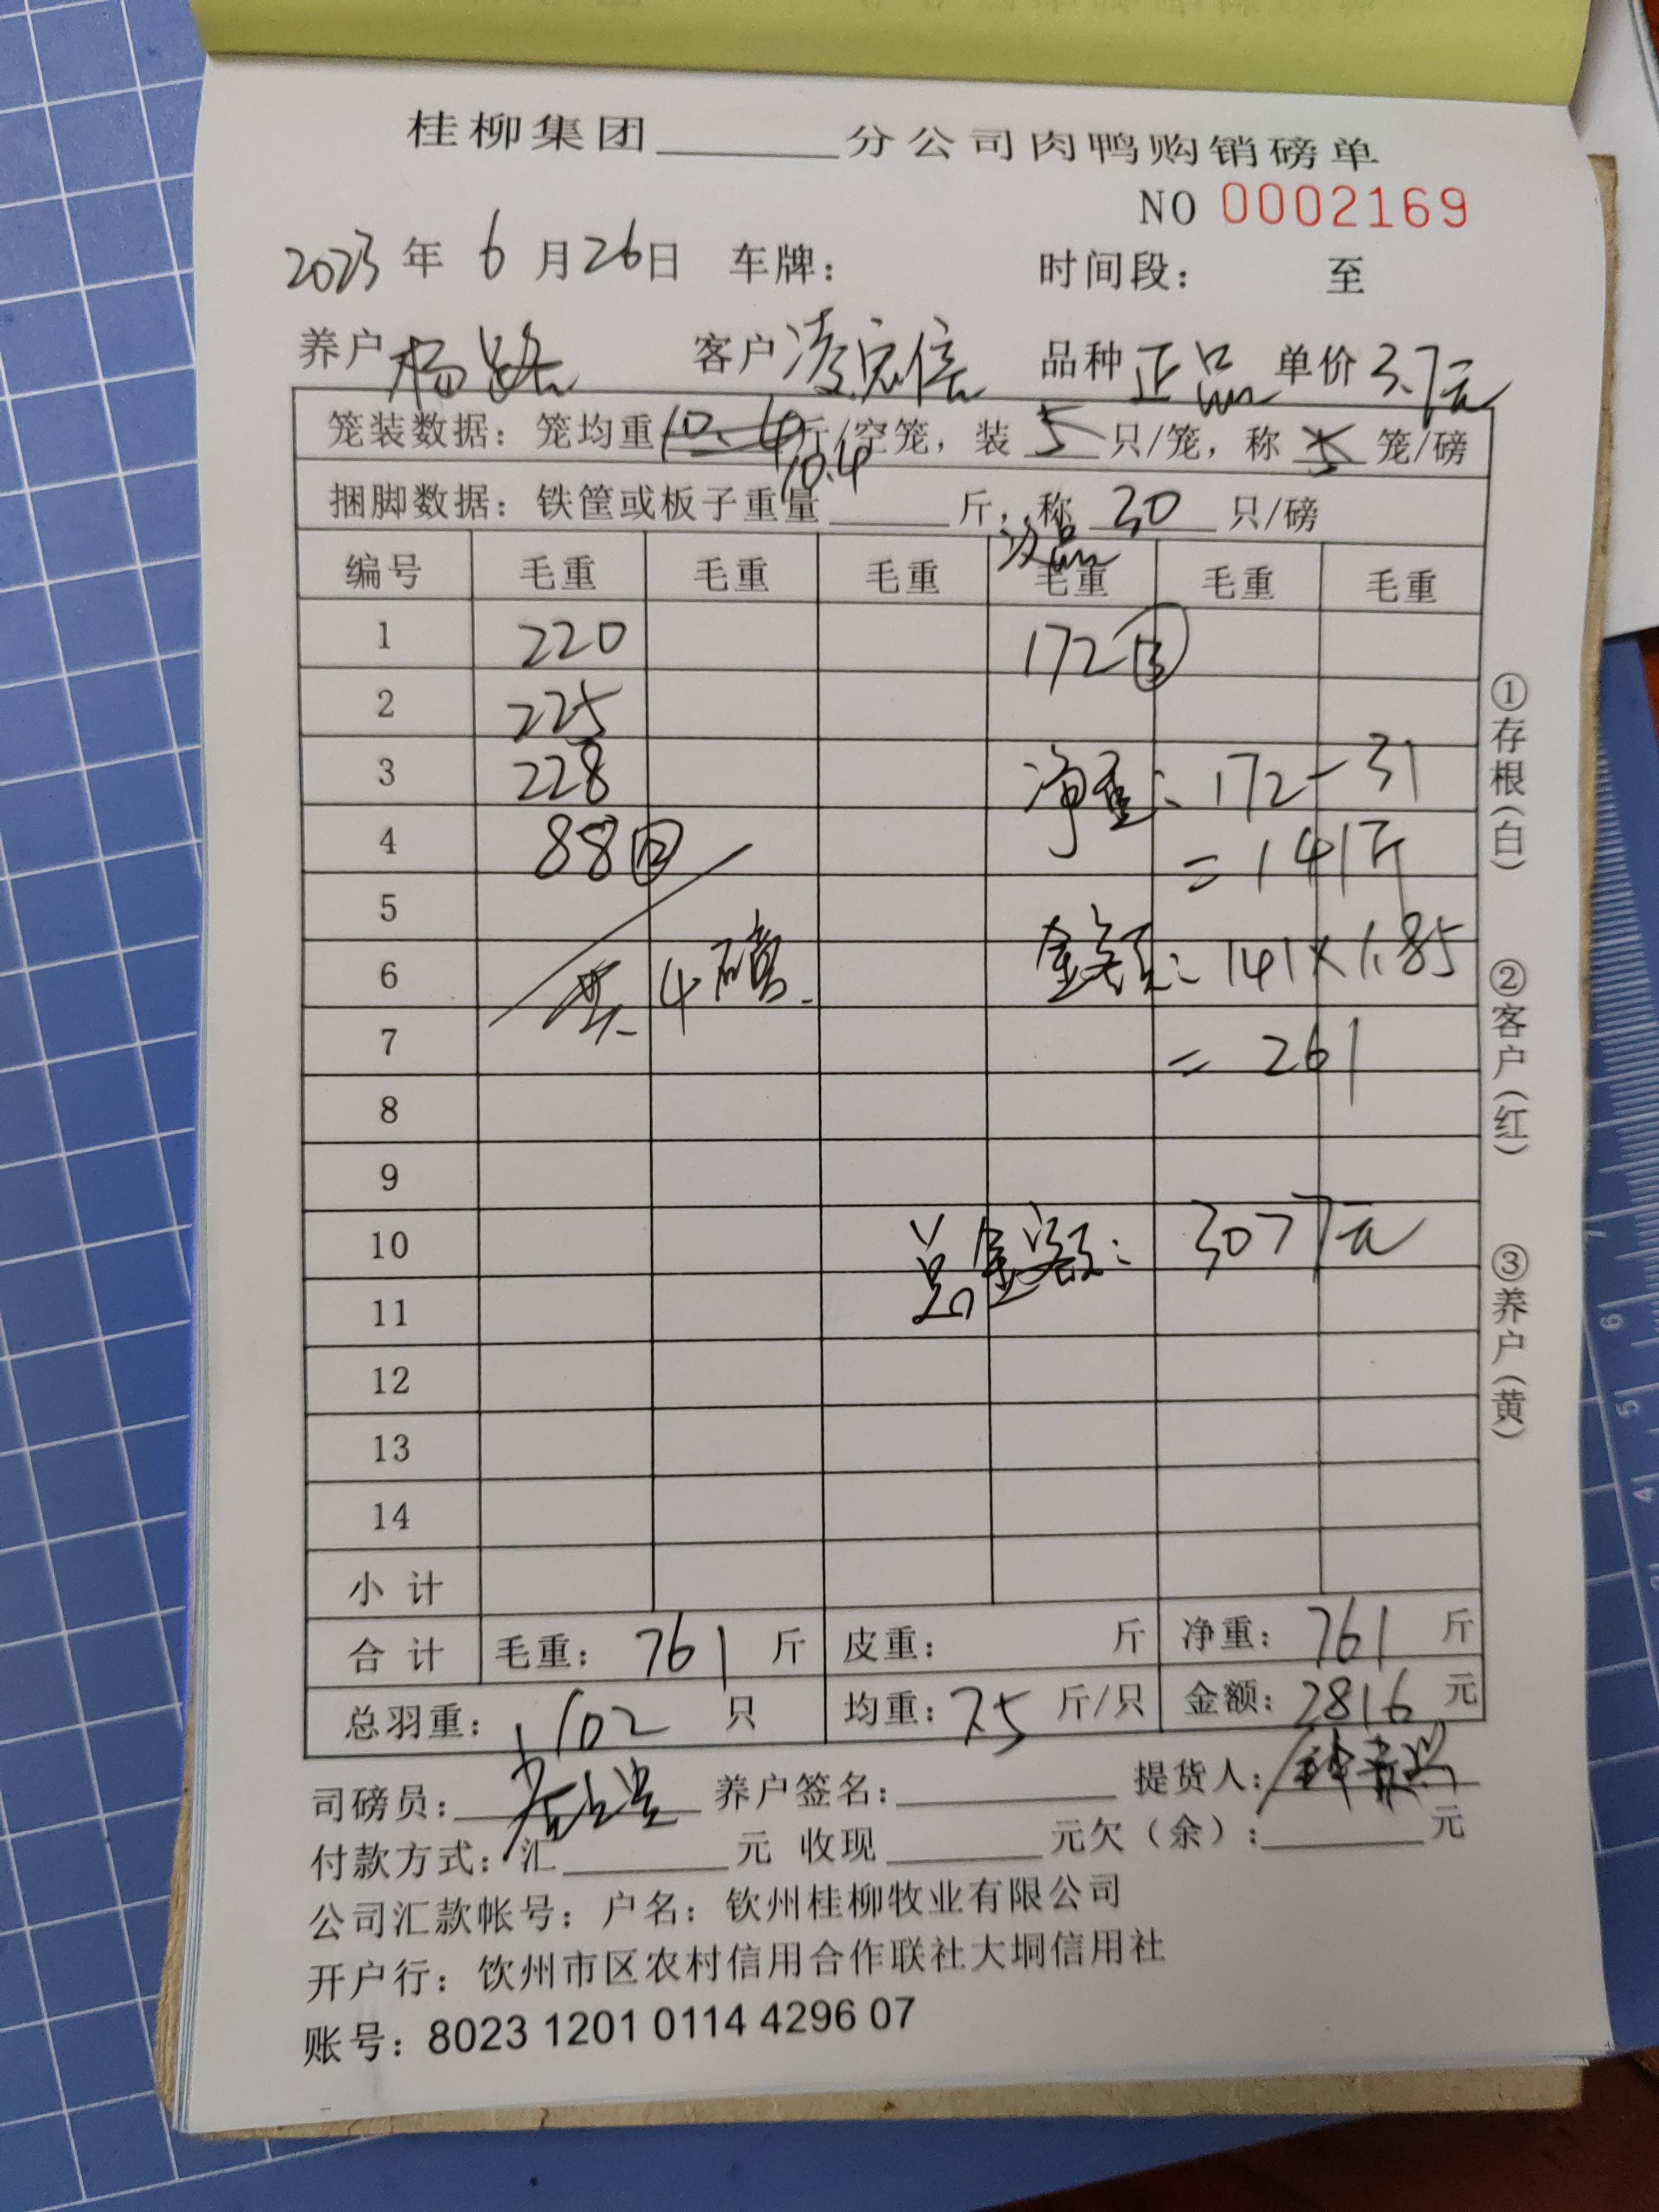 桂柳集团______分公司肉鸭购销磅单
NO 0002169
2023年 6月26日 车牌： 时间段： 至
养户 杨 客户 凌宏信 品种 正品 单价 3.7元
笼装数据：笼均重10.4斤/空笼，装 5 只/笼，称 5 笼/磅
10.4
捆脚数据：铁筐或板子重量______斤，称 30 只/磅
次品
编号 毛重 毛重 毛重 毛重 毛重 毛重
1 220 172 ③
2 225
3 228 净重：172-31
4 88 ⑫ =141斤
5
6 共4磅. 金额：141×1.85
7 =261
8
9
10 总金额：3077元
11
12
13
14
小计
合计 毛重：761 斤 皮重： 斤 净重：761 斤
总羽重：102 只 均重：7.5 斤/只 金额：2816 元
司磅员： 养户签名：______ 提货人：
付款方式：汇______元 收现______元欠（余）：______元
公司汇款帐号：户名：钦州桂柳牧业有限公司
开户行：钦州市区农村信用合作联社大垌信用社
账号：8023 1201 0114 4296 07
①存根（白）
②客户（红）
③养户（黄）